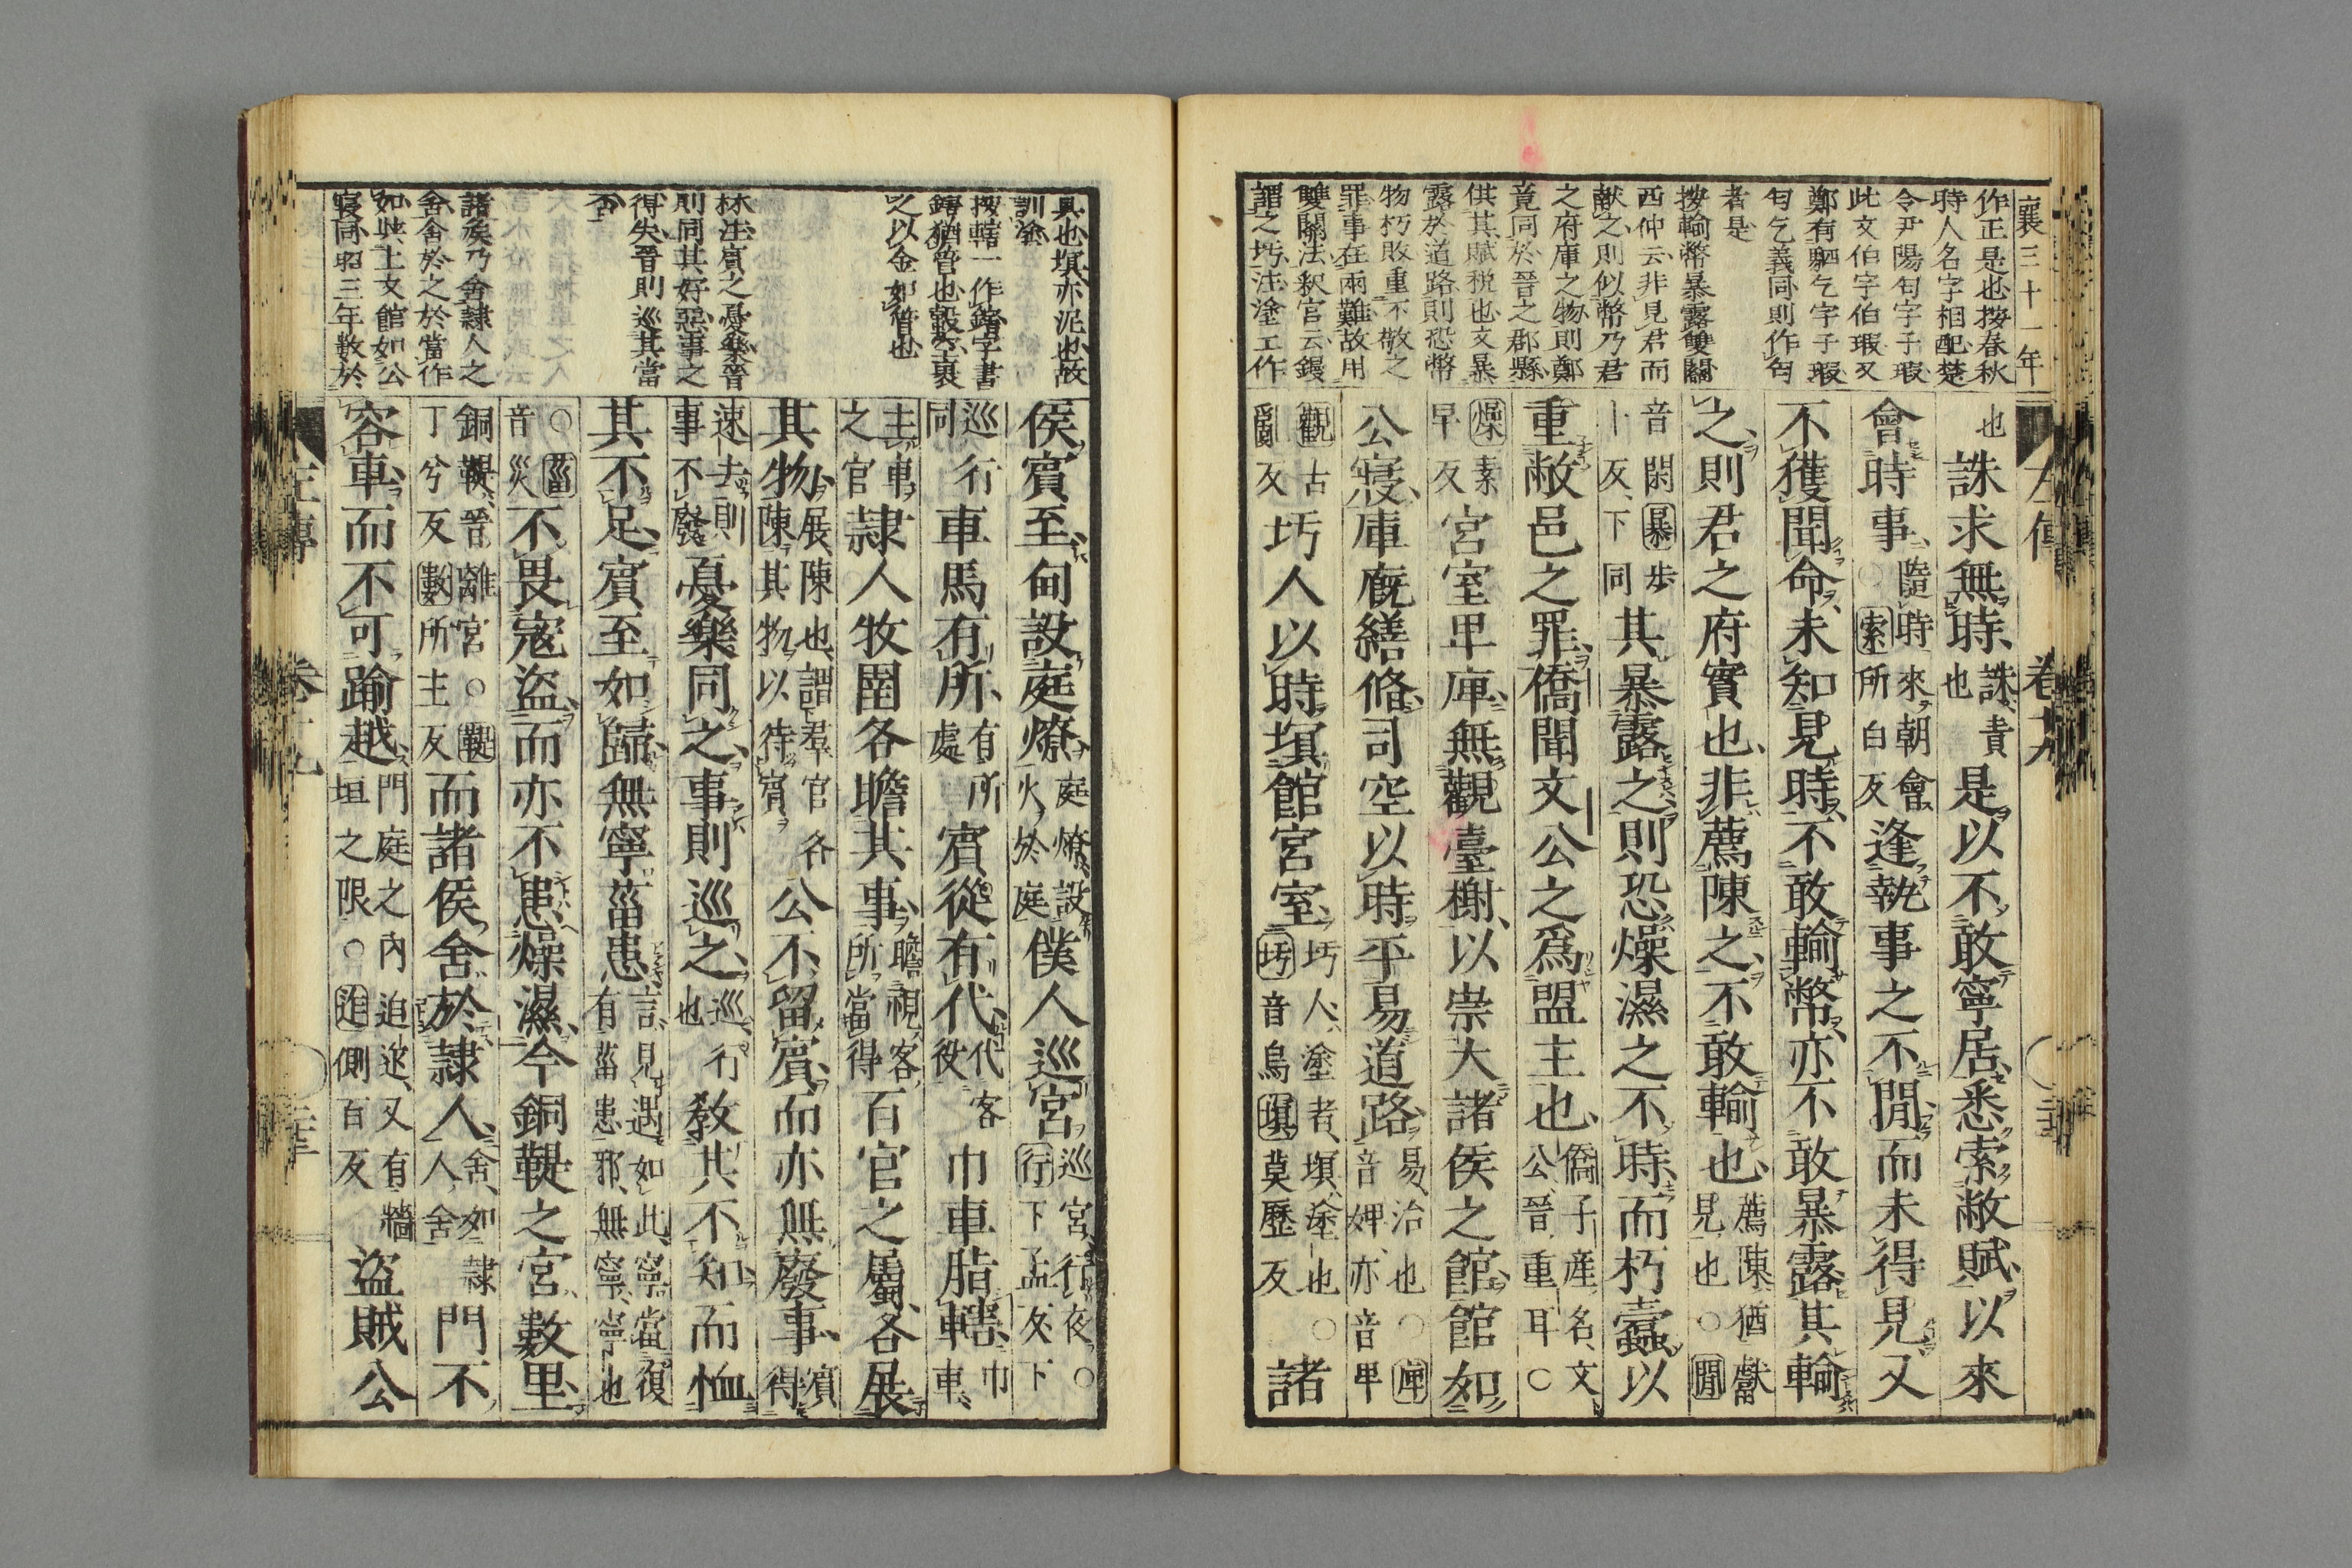 襄三十一年
作正是也按春秋
時人名字相配楚
令尹陽匄字子瑕
此文伯字伯瑕又
鄭有駟乞字子瑕
匄乞義同則作匄
者是
按輸幣暴露雙關
西仲云非見君而
献之則似幣乃君
之府庫之物則鄭
竟同於晉之郡縣
供其賦稅也文暴
露於道路則恐幣
物朽敗重不敬之
罪事在兩難故用
雙關法釈官云鏝
謂之圬注塗工作
也誅求無時誅責也是以不敢寧居悉索敝賦以來
會時事隨時來朝會○索所白反逢執事之不閒而未得見又
不獲聞命未知見時不敢輸幣亦不敢暴露其輸
之則君之府實也非薦陳之不敢輸也薦陳猶獻見也○閒
音閑暴步卜反下同其暴露之則恐燥濕之不時而朽蠹以
重敝邑之罪僑聞文公之爲盟主也僑子産名文公晉重耳○
燥素早反宮室卑庳無觀臺榭以崇大諸侯之館館如
公寢庫廐繕脩司空以時平易道路易治也○庳音婢亦音卑
觀古亂反圬人以時塓館宮室圬人塗者塓塗也○圬音烏塓莫歷反諸
具也塓亦泥也故
訓塗
按轄一作鎋字書
鎋猶管也轂空裹
之以金如管也
林注賓之憂樂晉
則同其好惡事之
得失晉則巡其當
否
諸矦乃舍隷人之
舍舍於之於當作
如與上文館如公
寢同昭三年數於
侯賓至甸設庭燎庭燎設火於庭僕人巡宮巡宮行夜○行下孟反下
巡行同車馬有所有所處賓從有代代客役巾車脂轄巾車
主車之官隸人牧圉各瞻其事瞻視客所當得百官之屬各展
其物展陳也謂羣官各陳其物以待賓公不留賓而亦無廢事賓得
速去則事不廢憂樂同之事則巡之巡行也教其不知而恤
其不足賓至如歸無寧菑患言見遇如此寧當復有菑患邪無寧寧也
○菑音災不畏寇盜而亦不患燥濕今銅鞮之宮數里
銅鞮晉離宮○鞮丁兮反數所主反而諸侯舍於隸人舍如隸人舍門不
容車而不可踰越門庭之內迫迮又有牆垣之限○迮側百反盜賊公